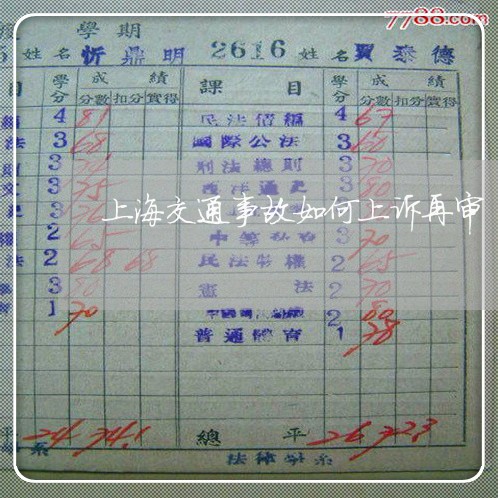 7788.com
學期
5 姓名 忻鼎明 2616 姓名 賈泰德
目 學分 成績 課目 學分 成績
分數 扣分 實得 分數 扣分 實得
4 81 民法債編 4 67
法 3 68 國際公法 3 60
則 3 刑法總則 3 70
3 75 3 80
3
上海交通事故如何上诉再审
2 65 3 70
法 2 68 68 民法物權 2 65
3 80 憲法 2 70
育 1 70 2 80
普通體育 1 78
平 24 74.1 總平 26 72.3
系 法律學系